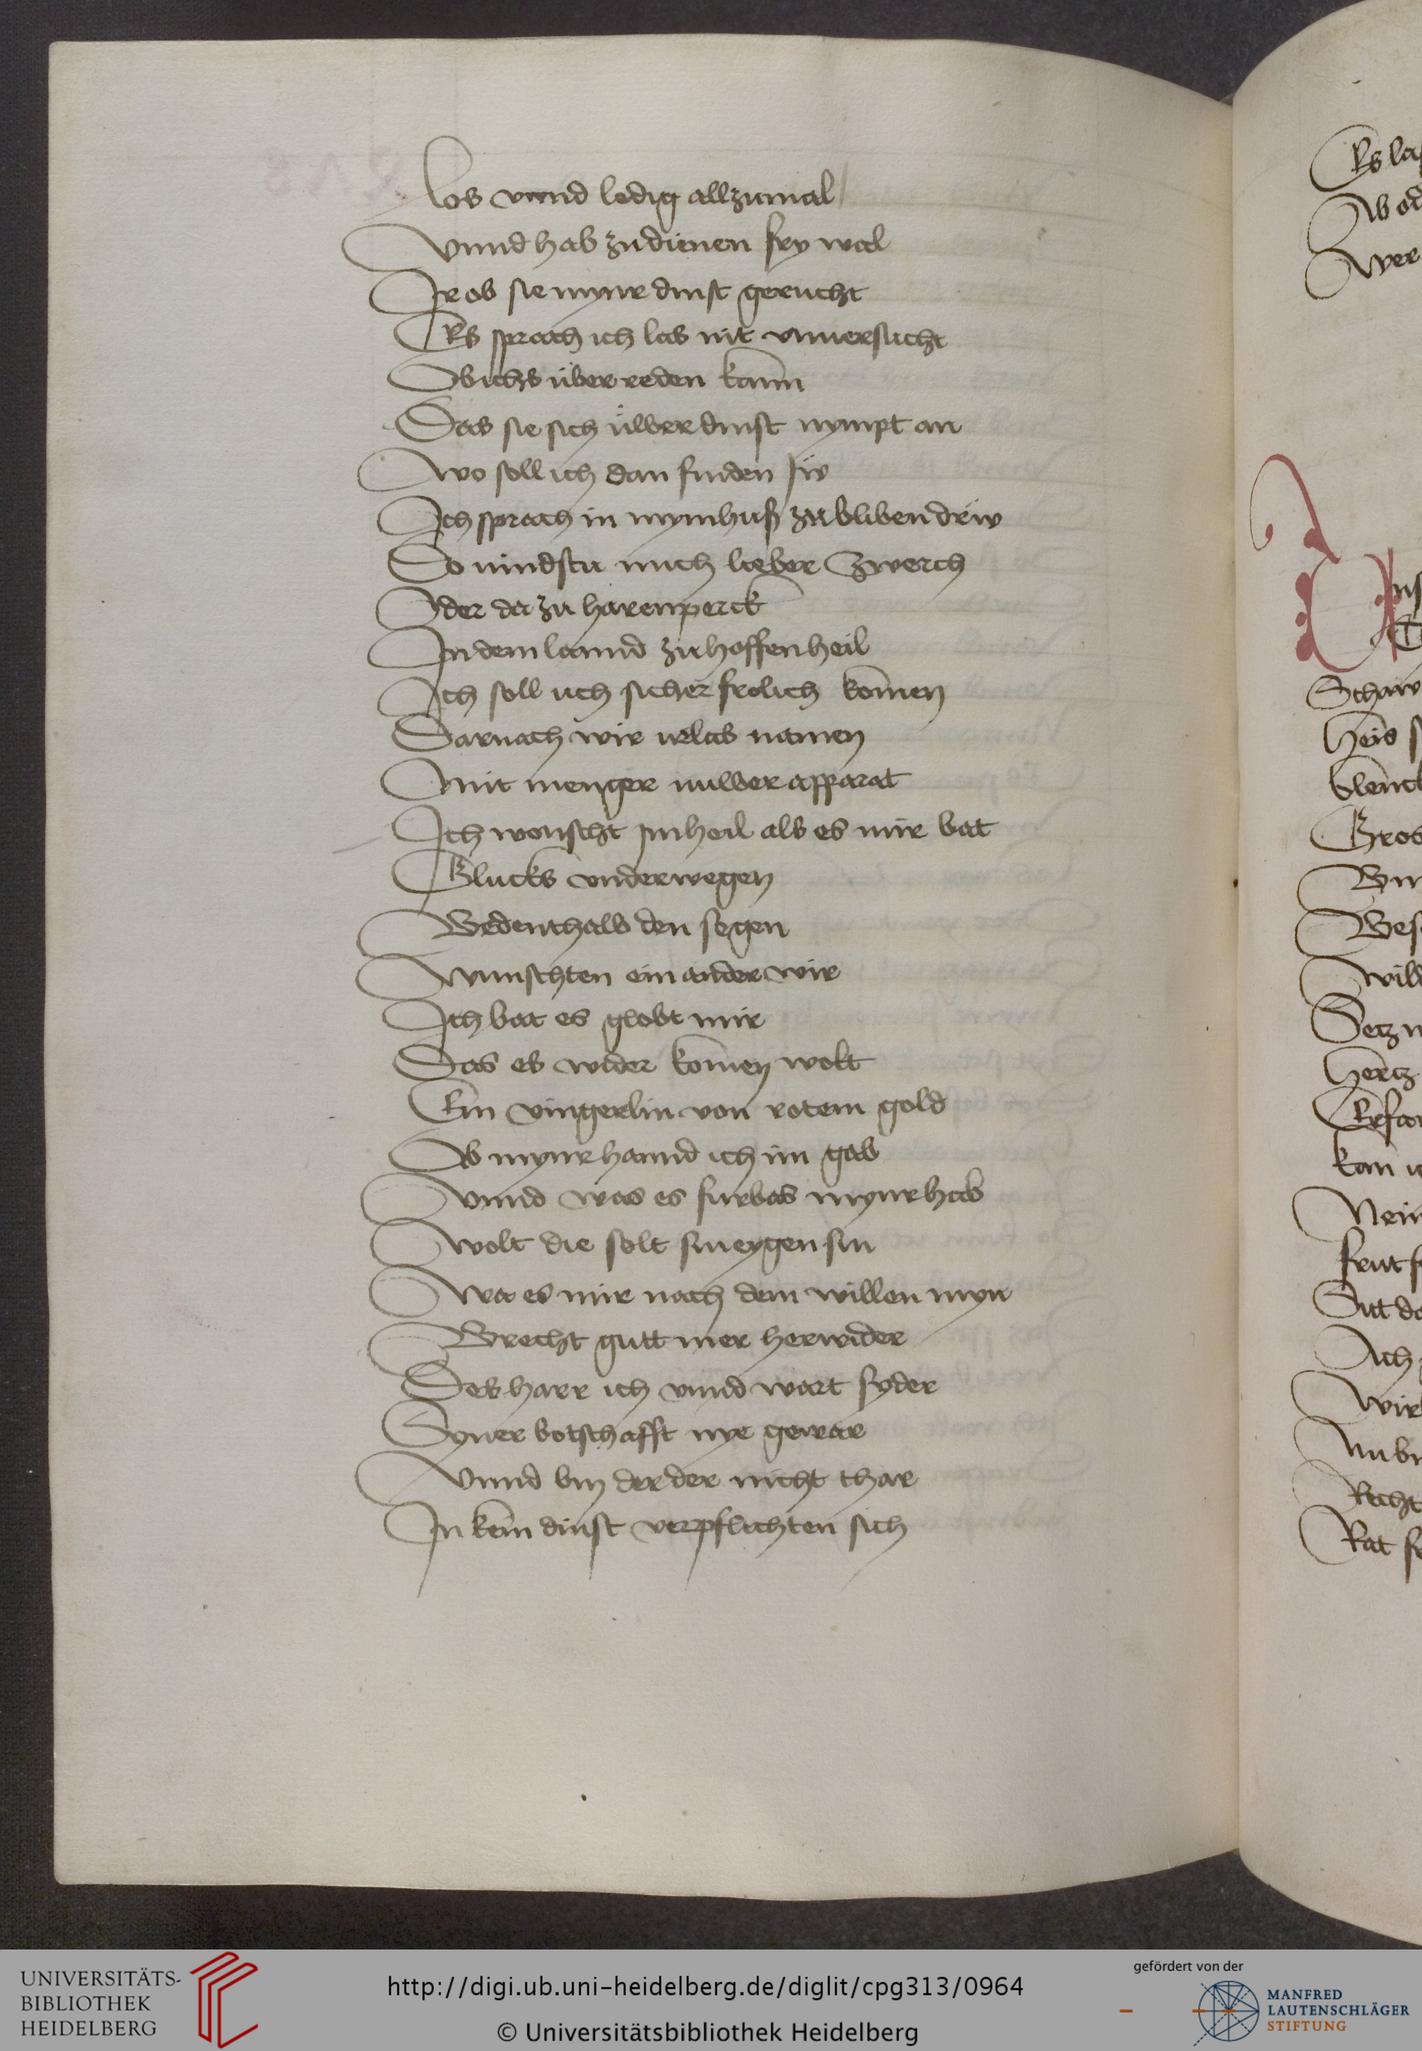 los vnnd ledig allzumal
Vnnd hab zu dienen fry wal
Ir ob sie mynr dinst gerucht
Es sprach ich las nit vnuersucht
Ob ichs über reden kann
Das sie sich üwer dinst nympt an
Wo soll ich dan finden üw
Ich sprach in mym huß zu bliben drüw
So vindstu mich lieber zwerch
Oder da zu harenperck
In dem lannd zu hoffenheil
Ich soll uch sicher frolich komen
Darnach wir vrlab namen
Mit menger nuwer apparat
Ich wonscht im heil als es mir bat
Glucks vnderwegen
Bedenthalb den segen
Wunschten ein ander wir
Ich bat es globt mir
Das es wider komen wolt
Ein vingerlin von rotem gold
Ab mynr hannd ich im gab
Vnnd was es furbas mynr hab
Wolt die solt sin eygen sin
Wa es mir nach dem willen myn
Brecht gutt mer herwider
Des harr ich vnnd wart syder
Syner botschafft nye gewar
Vnnd bin der der nicht thar
In kein dinst verpflichten sich
Es
Ab
Wer
Schaw
Heis
Gros
Wild
Setz
Hertz
kan
Nein
Ach
Wir
Recht
Rat
UNIVERSITÄTS-
BIBLIOTHEK
HEIDELBERG
http://digi.ub.uni-heidelberg.de/diglit/cpg313/0964
© Universitätsbibliothek Heidelberg
gefördert von der
MANFRED
LAUTENSCHLÄGER
STIFTUNG